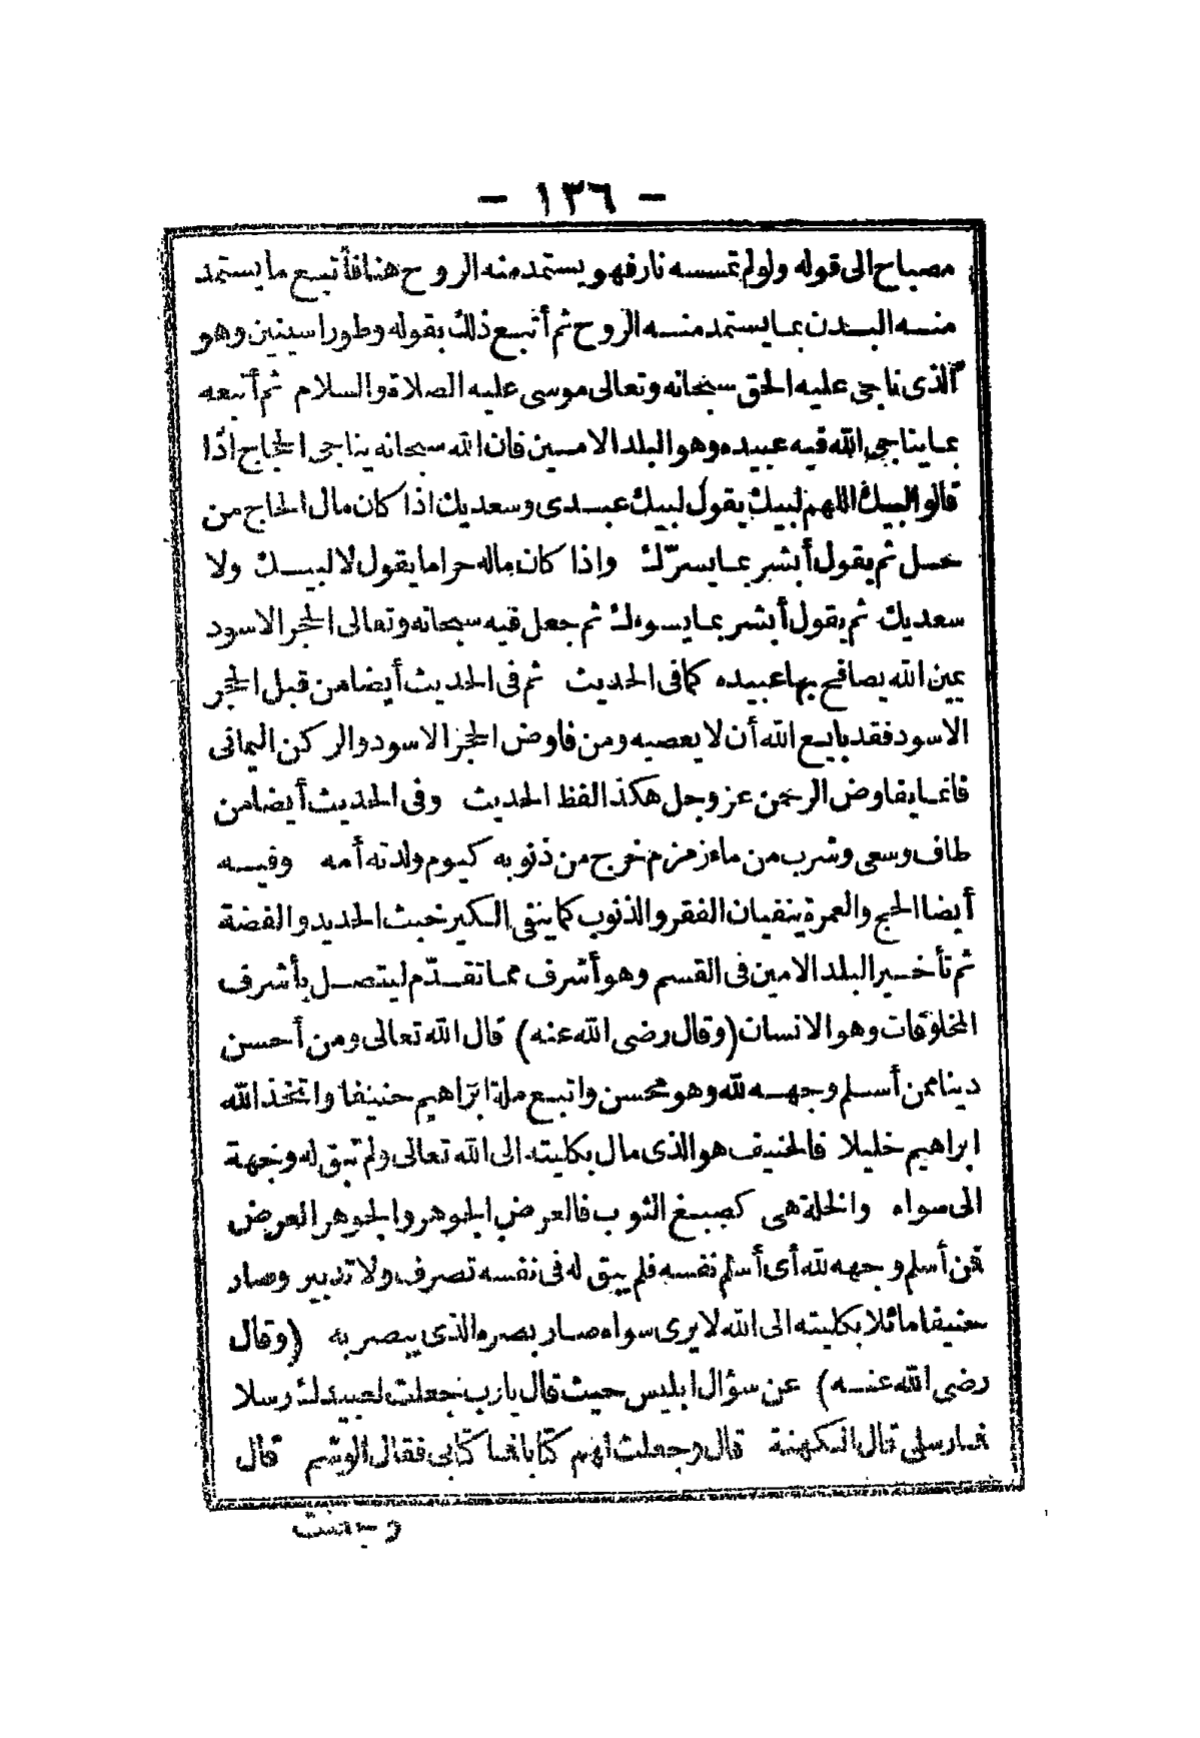 – ١٣٦ –
مصباح الى قوله ولو لم تمسسه نار فهو يستمد منه الروح هنا فأتبع ما يستمد
منه البدن بما يستمد منه الروح ثم أتبع ذلك بقوله وطور سينين وهو
الذى ناجى عليه الحق سبحانه وتعالى موسى عليه الصلاة والسلام ثم أتبعه
بما يناجى الله فيه عبيده وهو البلد الامين فان الله سبحانه يناجى الحجاج اذا
قالوا لبيك اللهم لبيك يقول لبيك عبدى وسعديك اذا كان مال الحاج من
حل ثم يقول أبشر بما يسرّك واذا كان ماله حراما يقول لا لبيك ولا
سعديك ثم يقول أبشر بما يسوءك ثم جعل فيه سبحانه وتعالى الحجر الاسود
يمين الله يصافح بها عبيده كما فى الحديث ثم فى الحديث أيضا من قبل الحجر
الاسود فقد بايع الله أن لا يعصيه ومن فاوض الحجر الاسود والركن اليمانى
فانما يفاوض الرحمن عز وجل هكذا لفظ الحديث وفى الحديث أيضا من
طاف وسعى وشرب من ماء زمزم خرج من ذنوبه كيوم ولدته أمه وفيه
أيضا الحج والعمرة ينفيان الفقر والذنوب كما ينقى الكير خبث الحديد والفضة
ثم تأخير البلد الامين فى القسم وهو أشرف مما تقدّم ليتصل بأشرف
المخلوقات وهو الانسان (وقال رضى الله عنه) قال الله تعالى ومن أحسن
دينا ممن أسلم وجهه لله وهو محسن واتبع ملة ابراهيم حنيفا واتخذ الله
ابراهيم خليلا فالحنيف هو الذى مال بكليته الى الله تعالى ولم تبق له وجهة
الى سواه والخلة هى كصبغ الثوب فالعرض الجوهر والجوهر العرض
فمن أسلم وجهه لله أى أسلم نفسه فلم يبق له فى نفسه تصرف ولا تدبير وصار
حنيفا مائلا بكليته الى الله لا يرى سواه صار بصره الذى يبصر به (وقال
رضى الله عنه) عن سؤال ابليس حيث قال يا رب جعلت لعبيدك رسلا
فما رسلى قال الكهنة قال وجعلت لهم كتابا فما كتابى فقال الوشم قال
وجعلت